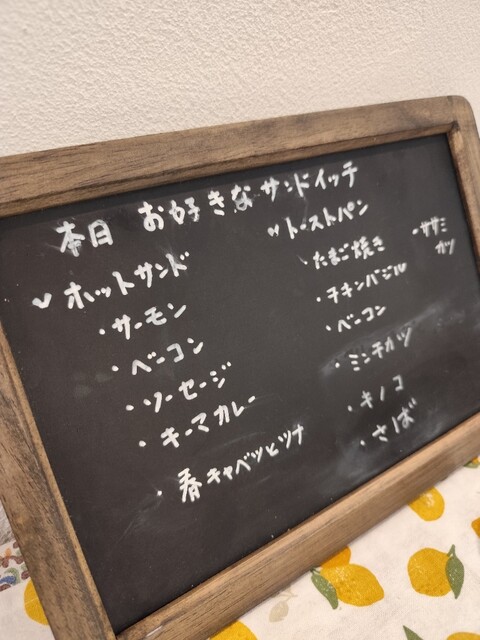 本日 お好きなサンドイッチ
ホットサンド
・サーモン
・ベーコン
・ソーセージ
・キーマカレー
・春キャベツとツナ
トーストパン
・たまご焼き
・チキンバジル
・ベーコン
・ミンチカツ
・キノコ
・さば
・ササミ
カツ